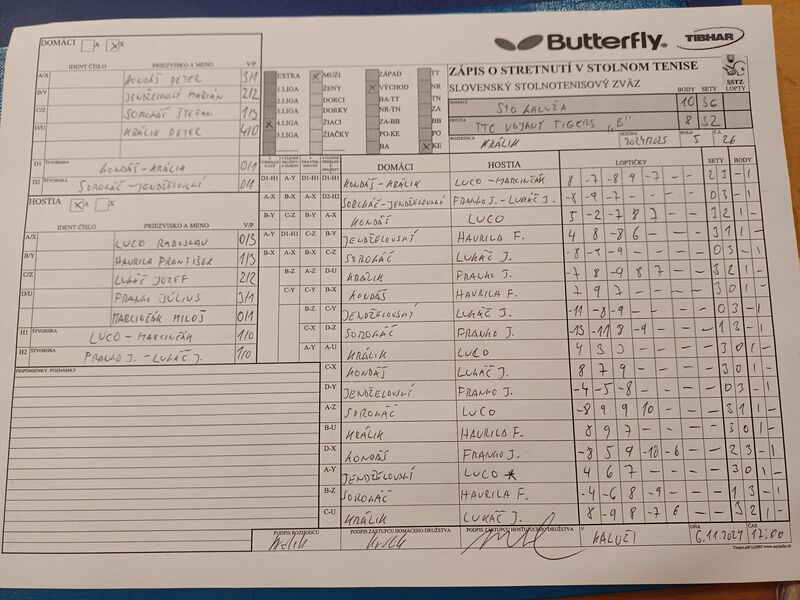 DOMÁCI A X
Butterfly. TIBHAR
IDENT ČÍSLO PRIEZVISKO A MENO V/P
A/X KONDÁŠ PETER 3/1
B/Y JENDŽELOVSKÝ MARIÁN 2/2
C/Z SOROKÁČ ŠTEFAN 1/3
D/U KRÁLIK PETER 4/0
D1 ŠTVORHRA KONDÁŠ-KRÁLIK 0/1
D2 ŠTVORHRA SOROKÁČ-JENDŽELOVSKÝ 0/1
EXTRA MUŽI ZÁPAD TT
1.LIGA ŽENY VÝCHOD NR
2.LIGA DORCI BA-TT TN
3.LIGA DORKY NR-TN ZA
4.LIGA ŽIACI ZA-BB BB
5.LIGA ŽIAČKY PO-KE PO
BA KE
ZÁPIS O STRETNUTÍ V STOLNOM TENISE
SLOVENSKÝ STOLNOTENISOVÝ ZVÄZ
SSTZ
BODY SETY LOPTY
DOMÁCI STO KALUŽA 10 36
HOSTIA TTC VOJANY TIGERS "B" 8 32
ROZHODCA KRÁLIK SEZÓNA 2024/2025 KOLO 5 Č.Z. 26
HOSTIA X
IDENT ČÍSLO PRIEZVISKO A MENO V/P
A/X LUCO RADOSLAV 0/3
B/Y HAURILA FRANTIŠEK 1/3
C/Z LUKÁČ JOZEF 2/2
D/U FRANKO JÚLIUS 3/1
MARCINČÁK MILOŠ 0/1
H1 ŠTVORHRA LUCO-MARCINČÁK 1/0
H2 ŠTVORHRA FRANKO J.-LUKÁČ J. 1/0
PRIPOMIENKY, POZNÁMKY
DOMÁCI HOSTIA LOPTIČKY SETY BODY
D1-H1 A-Y D1-H1 D1-H1 KONDÁŠ-KRÁLIK LUCO-MARCINČÁK 8 -7 -8 9 -7 - - 2 3 - 1
A-X B-X A-X D2-H2 SOROKÁČ-JENDŽELOVSKÝ FRANKO J.-LUKÁČ J. -8 -9 -7 - - - - 0 3 - 1
B-Y C-Z B-Y A-X KONDÁŠ LUCO 5 -2 -7 8 7 - - 3 2 1 -
A-Y D1-H1 C-Z B-Y JENDŽELOVSKÝ HAURILA F. 4 8 -8 6 - - - 3 1 1 -
B-X A-X B-X C-Z SOROKÁČ LUKÁČ J. - - - - 0 3 - 1
B-Z A-Z D-U KRÁLIK FRANKO J. -7 8 -9 8 7 - - 3 2 1 -
C-Y C-Y B-X KONDÁŠ HAURILA F. 7 9 7 - - - - 3 0 1 -
B-Z C-Y JENDŽELOVSKÝ LUKÁČ J. -11 -8 -9 - - - - 0 3 - 1
C-X D-Z SOROKÁČ FRANKO J. -13 -11 8 -9 - - - 1 3 - 1
A-Y A-U KRÁLIK LUCO 4 3 3 - - - - 3 0 1 -
C-X KONDÁŠ LUKÁČ J. 8 7 9 - - - - 3 0 1 -
D-Y JENDŽELOVSKÝ FRANKO J. -4 -5 -8 - - - - 0 3 - 1
A-Z SOROKÁČ LUCO -8 9 9 10 - - - 3 1 1 -
B-U KRÁLIK HAURILA F. 8 9 7 - - - - 3 0 1 -
D-X KONDÁŠ FRANKO J. -8 5 9 -10 -6 - - 2 3 - 1
A-Y JENDŽELOVSKÝ LUCO 4 6 7 - - - - 3 0 1 -
B-Z SOROKÁČ HAURILA F. -4 -6 8 -9 - - - 1 3 - 1
C-U KRÁLIK LUKÁČ J. 8 -9 8 -7 6 - - 3 2 1 -
PODPIS ROZHODCU PODPIS ZÁSTUPCU DOMÁCEHO DRUŽSTVA PODPIS ZÁSTUPCU HOSŤUJÚCEHO DRUŽSTVA V KALUŽI DŇA 6.11.2024 ČAS 17:00